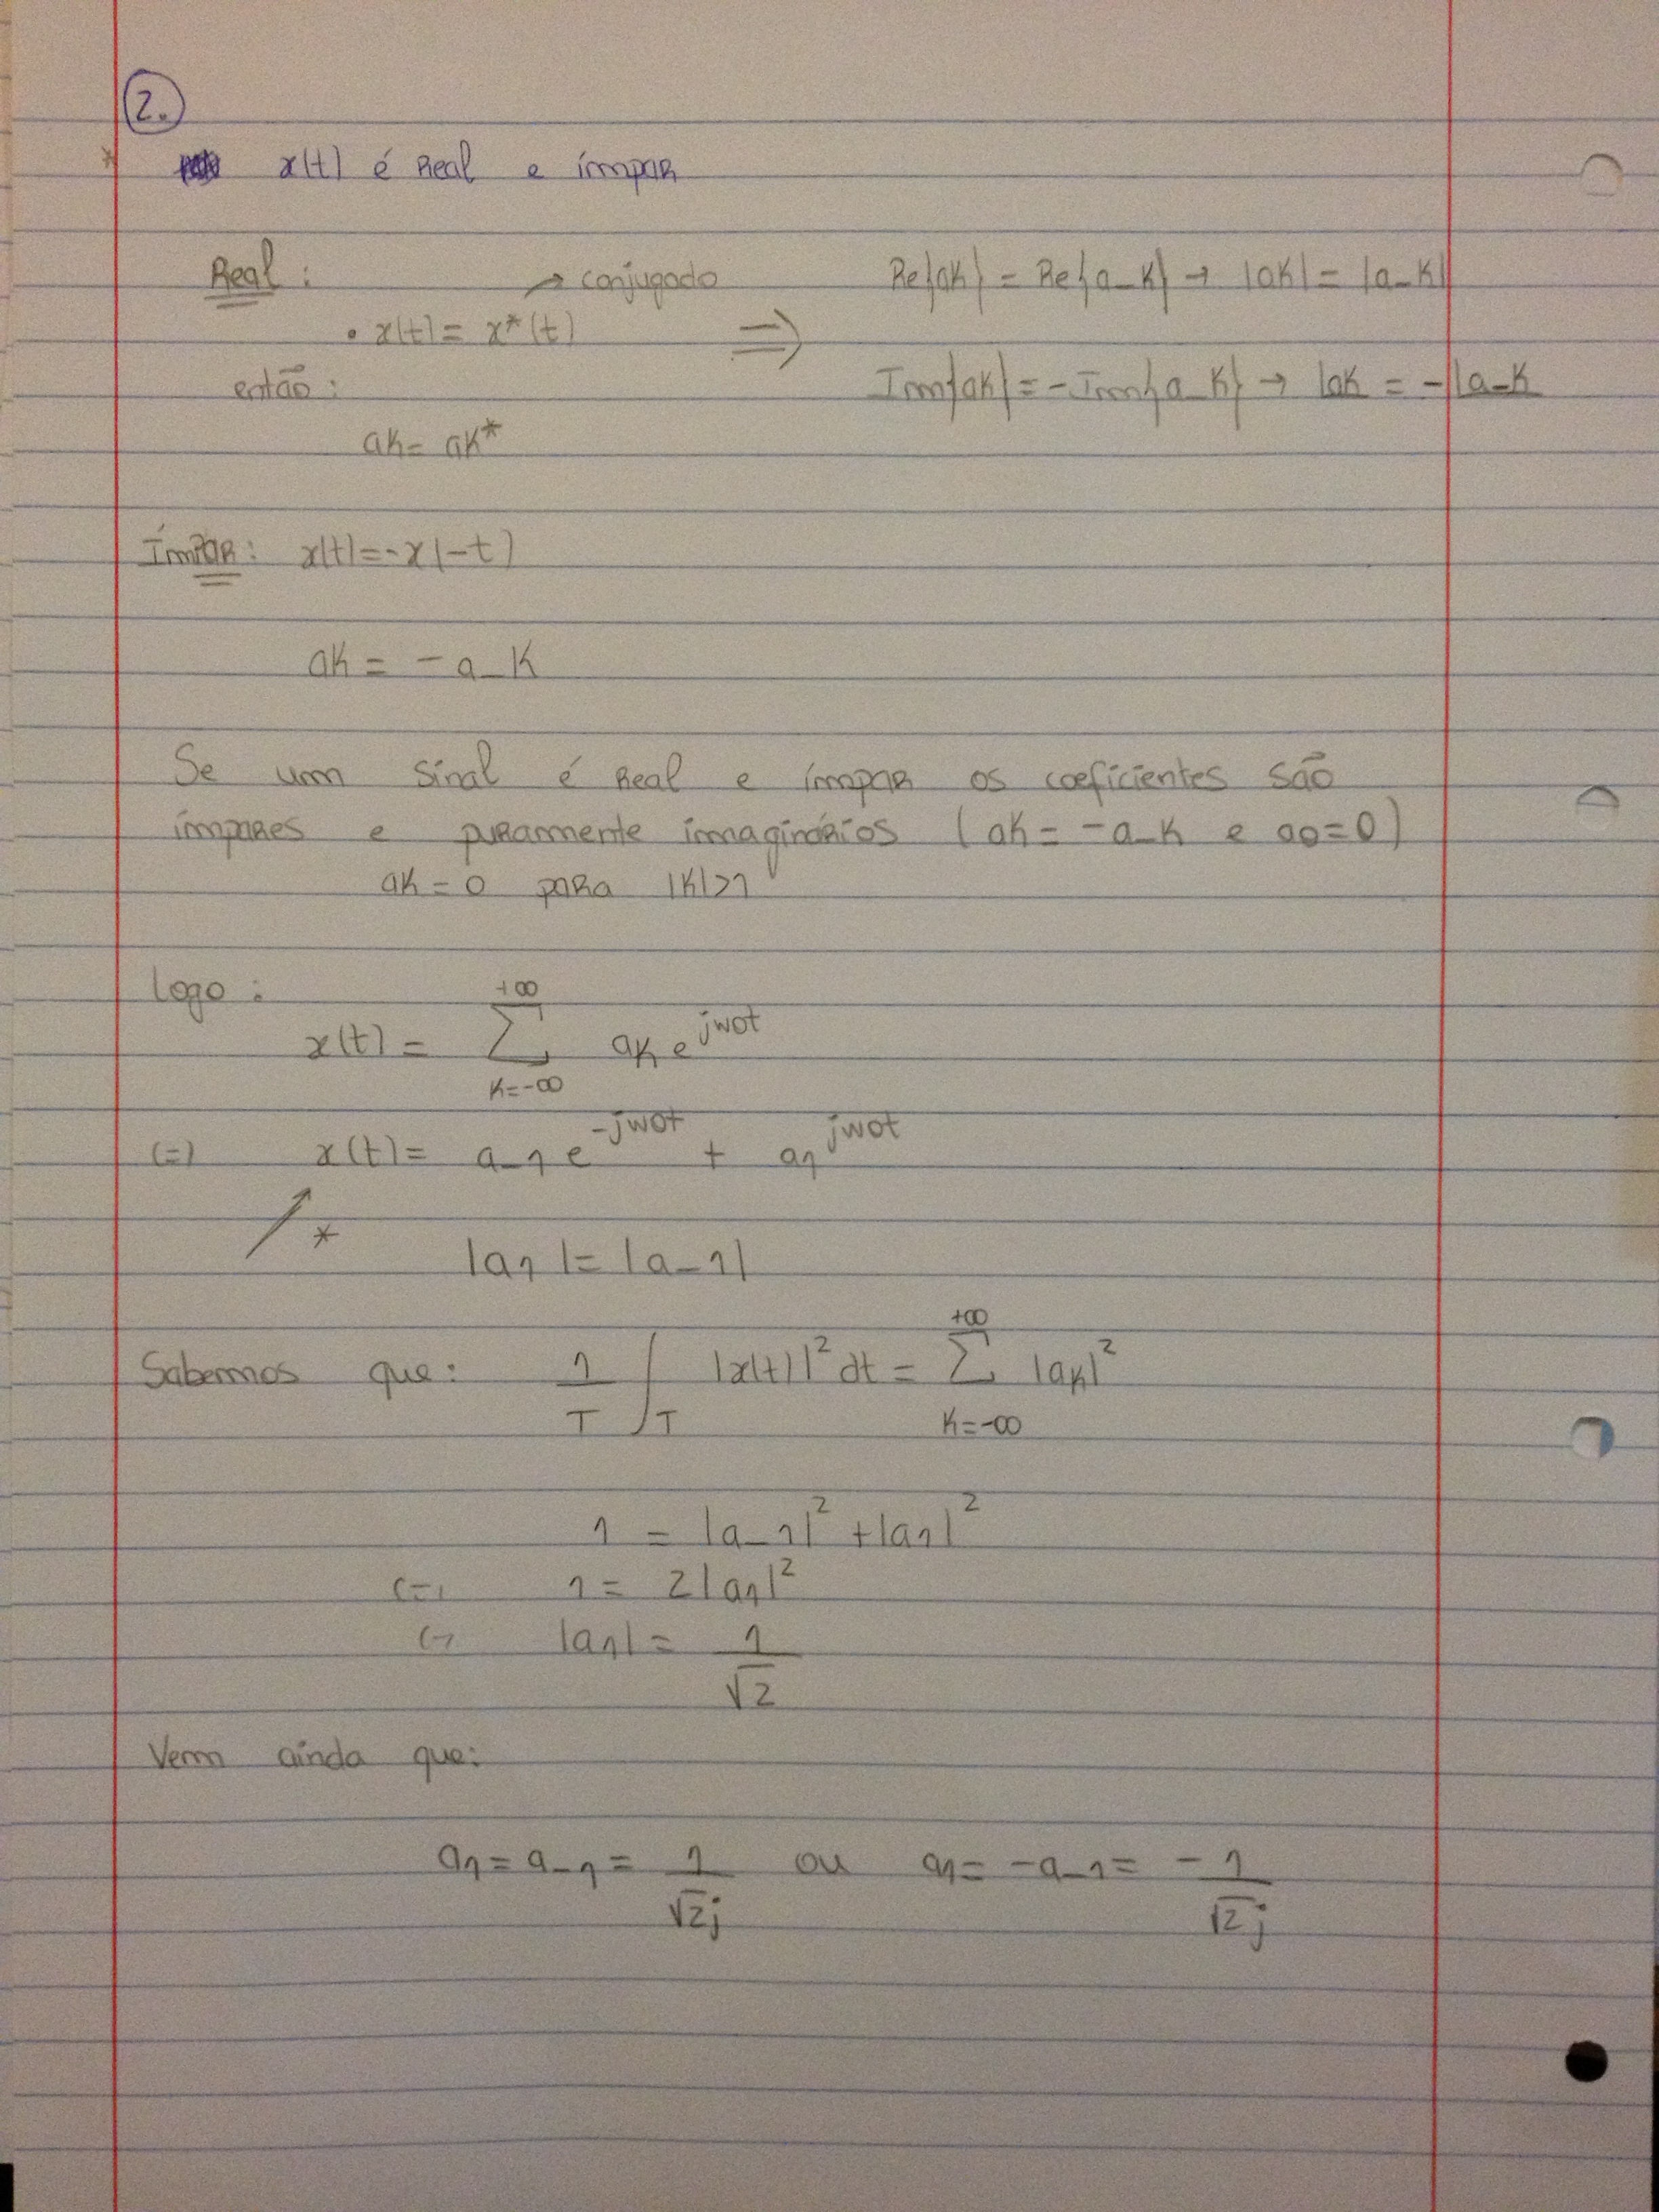 2.
* x(t) é Real e ímpar
Real: → conjugado Re{ak} = Re{a-k} → |ak| = |a-k|
• x(t) = x*(t) ⇒
então: Im{ak} = -Im{a-k} → ∠ak = -∠a-k
ak = ak*
Ímpar: x(t) = -x(-t)
ak = -a-k
Se um sinal é Real e ímpar os coeficientes são
ímpares e puramente imaginários (ak = -a-k e a0=0)
ak = 0 para |k|>1
Logo:
x(t) = +∞ Σ k=-∞ ak e^jwot
(=) x(t) = a-1 e^-jwot + a1^jwot
↗ * |a1| = |a-1|
Sabemos que: 1/T ∫T |x(t)|² dt = +∞ Σ k=-∞ |ak|²
1 = |a-1|² + |a1|²
(=) 1 = 2|a1|²
(=) |a1| = 1/√2
Vem ainda que:
a1 = a-1 = 1/√2j ou a1 = -a-1 = -1/√2j